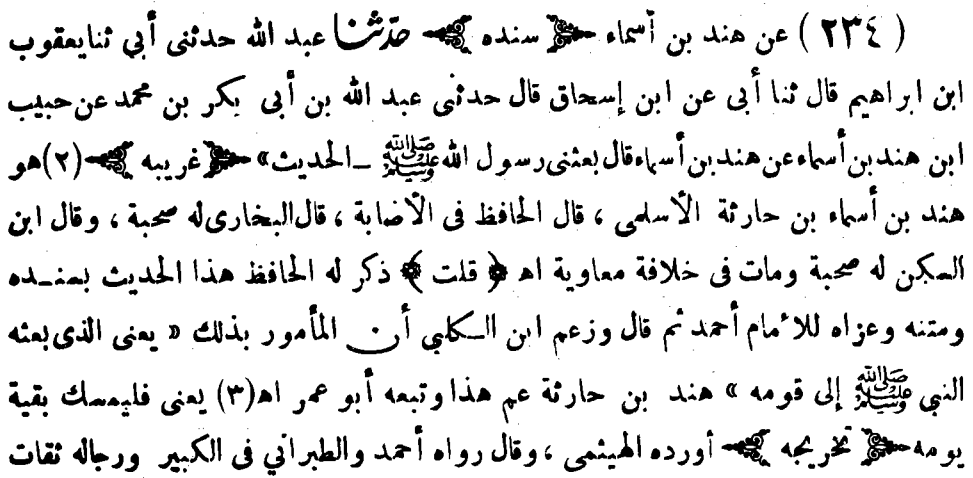 ( ٢٣٤ ) عن هند بن أسماء ﴿ سنده ﴾ حدّثنا عبد الله حدثنى أبي ثنايعقوب
ابن ابراهيم قال ثنا أبى عن ابن إسحاق قال حدثنى عبد الله بن أبى بكر بن محمد عن حبيب
ابن هندبن أسماءعن هندبن أسماءقال بعثنى رسول الله ﷺ _الحديث» ﴿ غريبه ﴾ (٢) هو
هند بن أسماء بن حارثة الأسلمى ، قال الحافظ فى الأصابة ، قال البخارى له صحبة ، وقال ابن
السكن له صحبة ومات فى خلافة معاوية اه ﴿ قلت ﴾ ذكر له الحافظ هذا الحديث بسنــده
ومتنه وعزاه للامام أحمد ثم قال وزعم ابن الــكلبي أن المأمور بذلك « يعنى الذى بعثه
النبي ﷺ إلى قومه » هند بن حارثة عم هذا وتبعه أبو عمر اه (٣) يعنى فليمسك بقية
يومه ﴿ تخريجه ﴾ أورده الهيثمى ، وقال رواه أحمد والطبرانى فى الكبير ورجاله ثقات